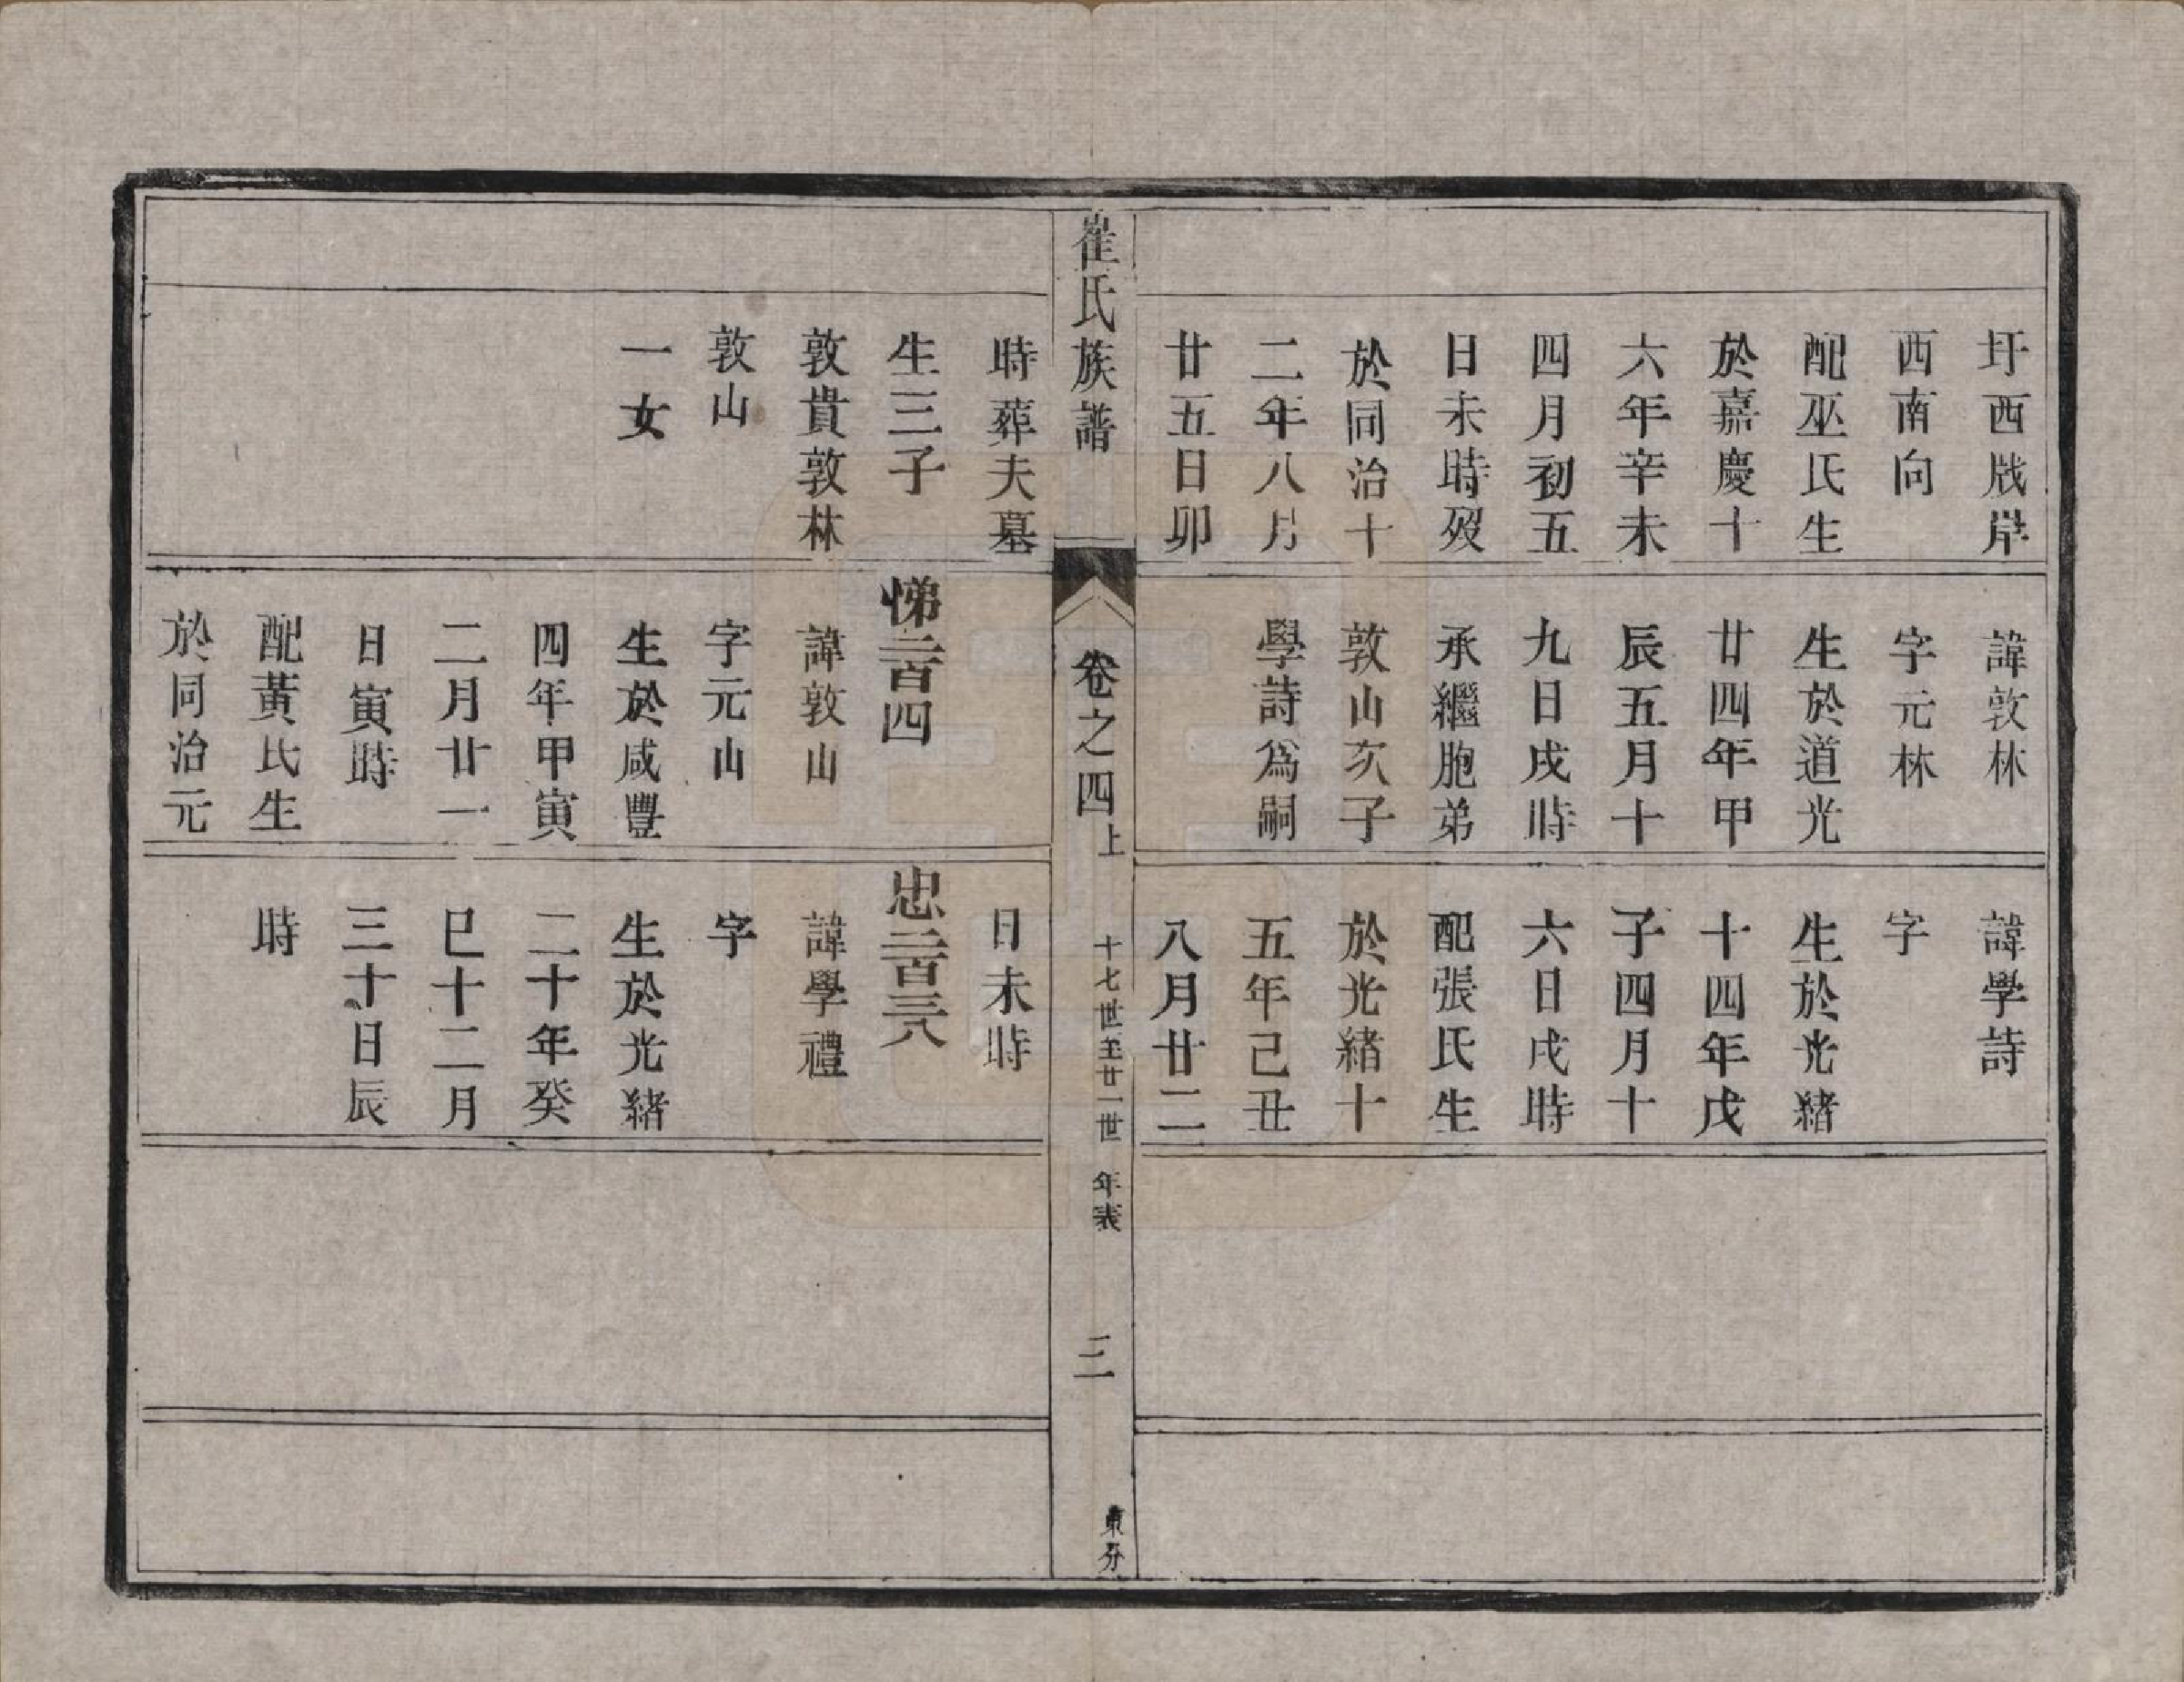 圩西戙岸
西南向
配巫氏生
於嘉慶十
六年辛未
四月初五
日未時歿
於同治十
二年八月
廿五日卯
諱敦林
字元林
生於道光
廿四年甲
辰五月十
九日戌時
承繼胞弟
敦山次子
學詩爲嗣
諱學詩
字
生於光緒
十四年戊
子四月十
六日戌時
配張氏生
於光緒十
五年己丑
八月廿二
崔氏族譜
卷之四上
十七世至廿一世 年表
二
東分
時葬夫墓
生三子
敦貴敦林
敦山
一女
悌二百四
諱敦山
字元山
生於咸豐
四年甲寅
二月廿一
日寅時
配黃氏生
於同治元
日未時
忠二百三八
諱學禮
字
生於光緒
二十年癸
巳十二月
三十日辰
時